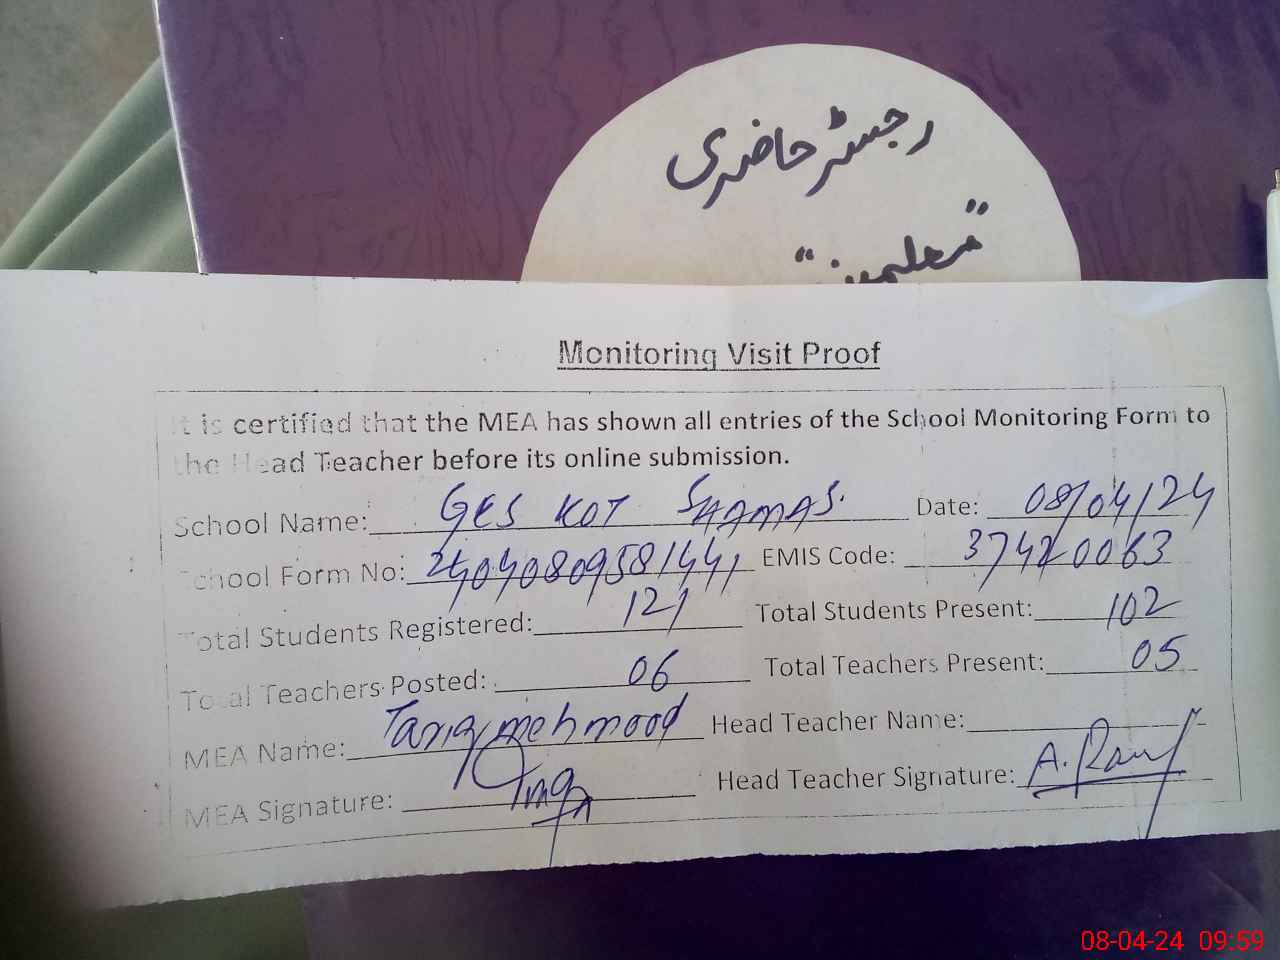 رجسٹر حاضری
"معلمین"
Monitoring Visit Proof
It is certified that the MEA has shown all entries of the School Monitoring Form to
the Head Teacher before its online submission.
School Name: GES KOT SHAMAS. Date: 08/04/24
School Form No: 24040809581441 EMIS Code: 37420063
Total Students Registered: 121 Total Students Present: 102
Total Teachers Posted: 06 Total Teachers Present: 05
MEA Name: Tariq mehmood Head Teacher Name:
MEA Signature: Head Teacher Signature: A. Rauf
08-04-24 09:59